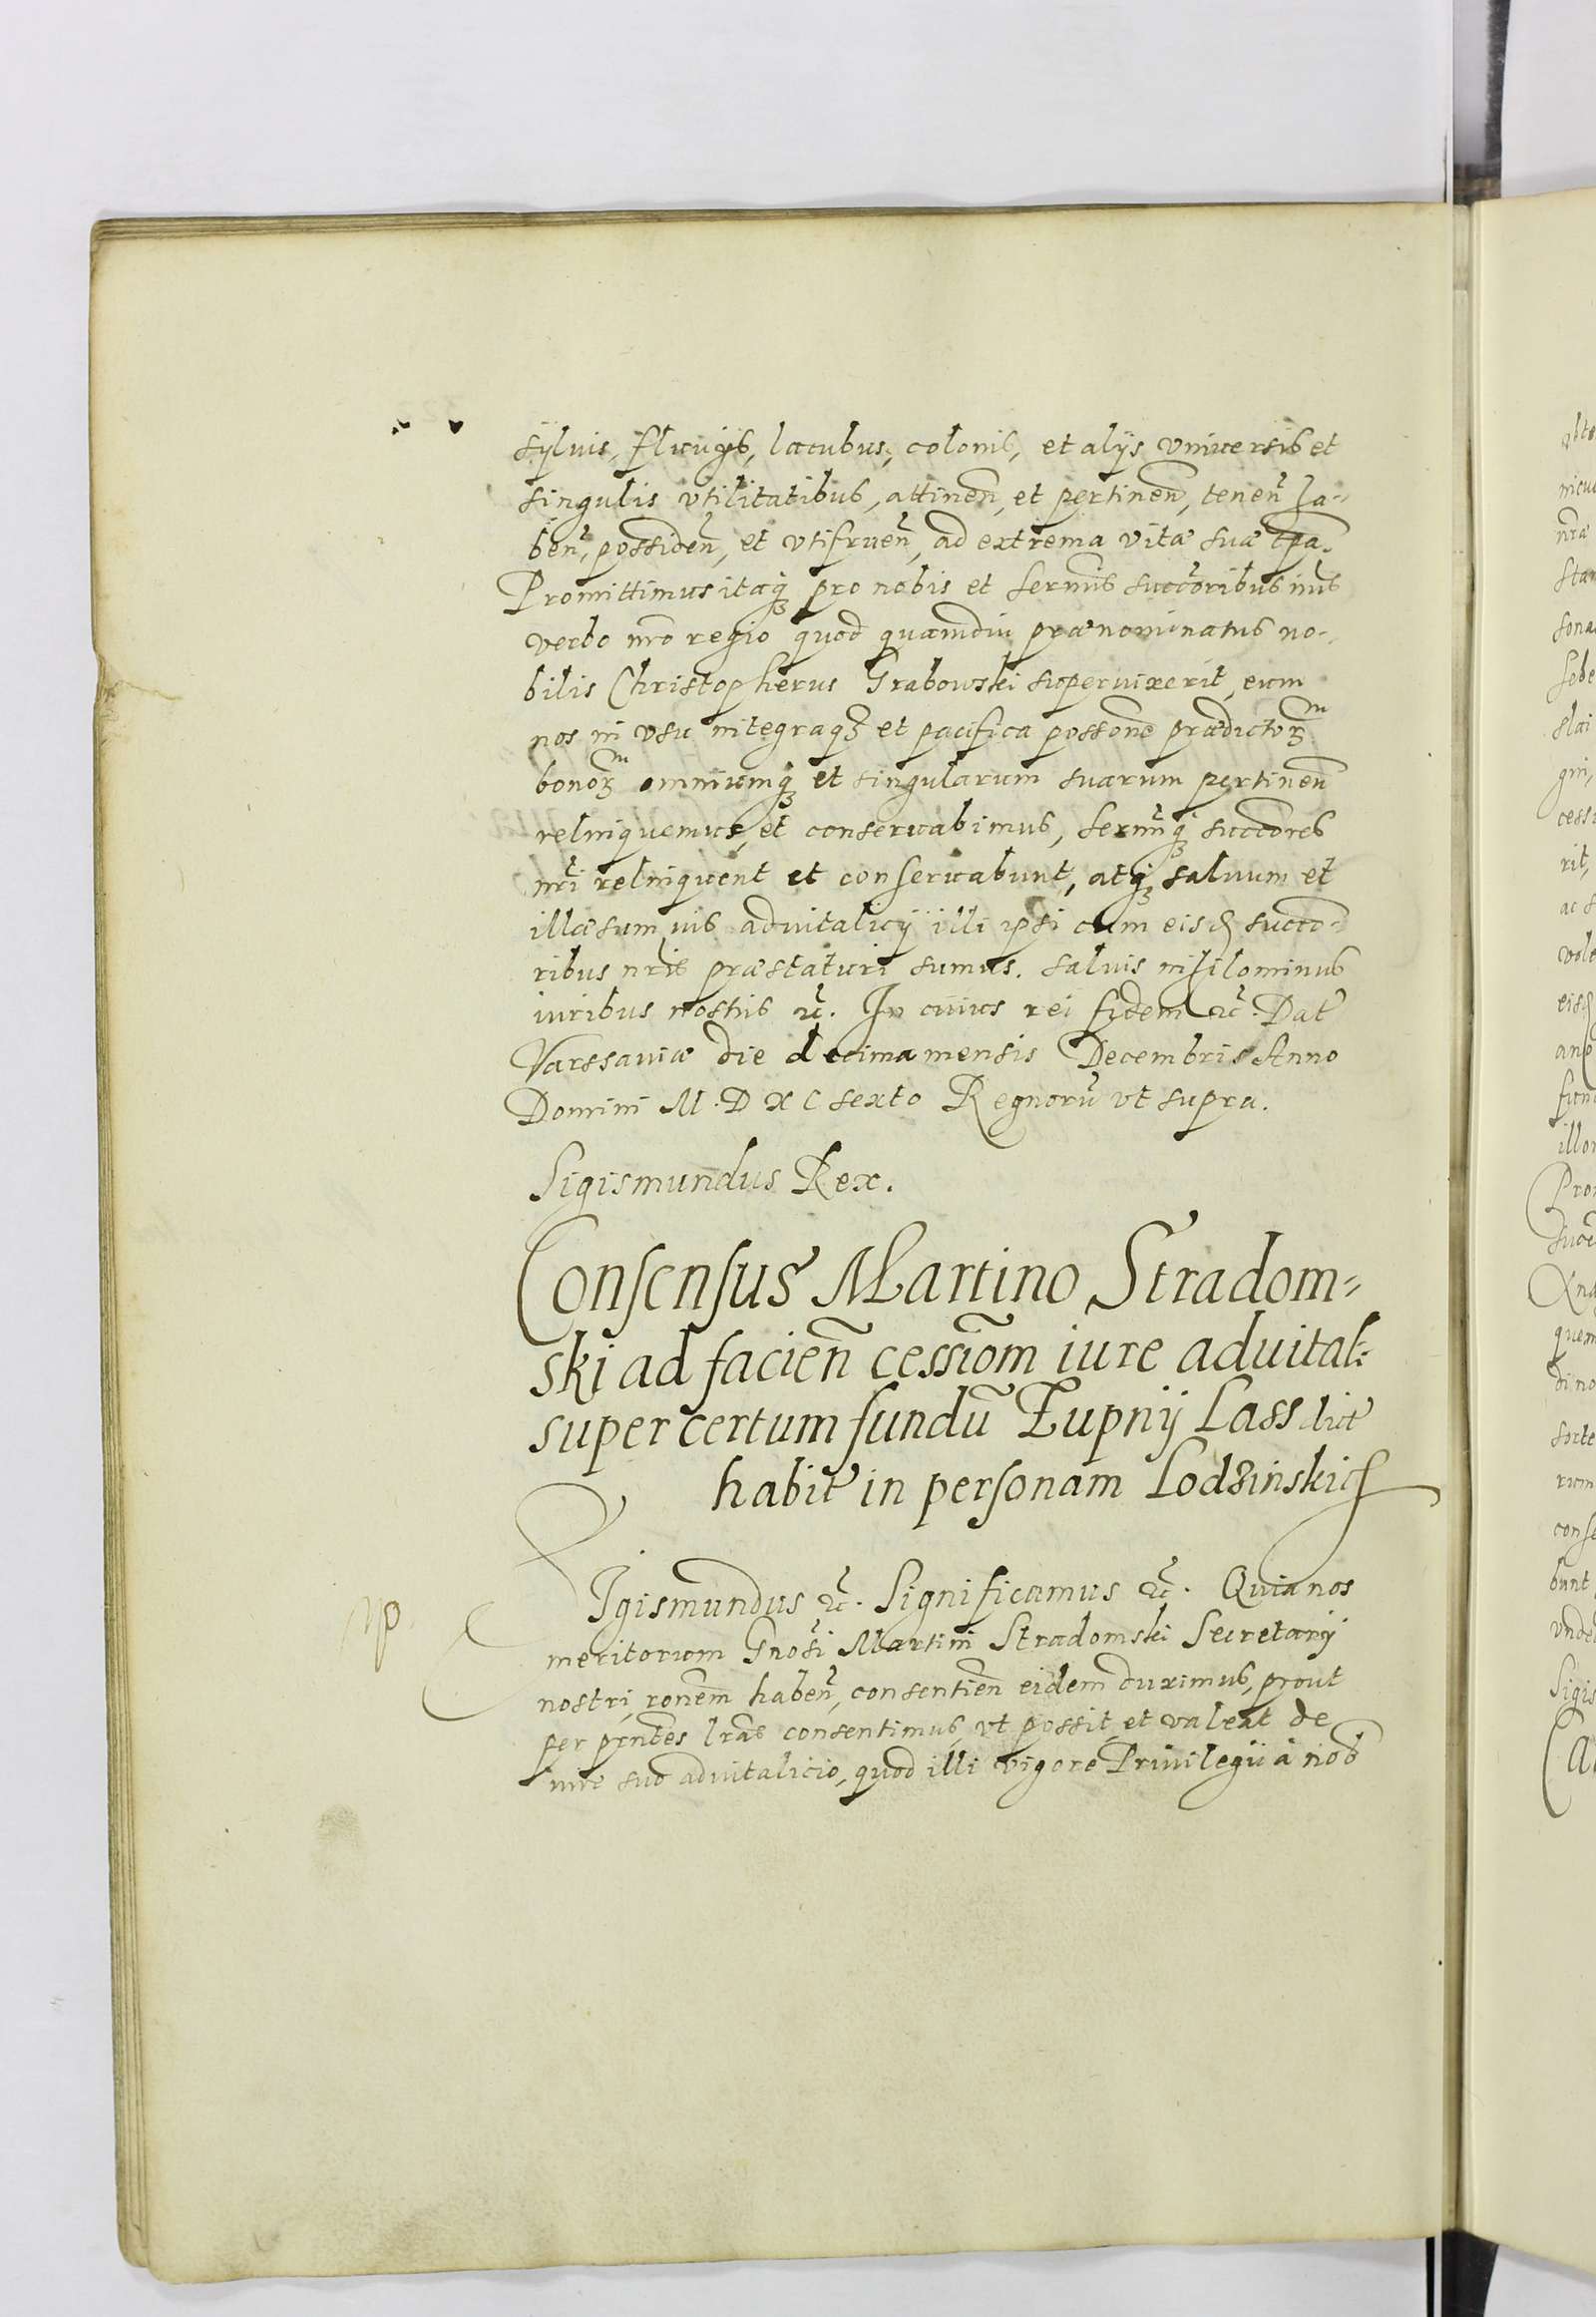 sylvis, fluvijs, lacubus, colonis, et alijs vniuersis et
singulis vtilitatibus, attineñ, et pertineñ, teneñ ha-
beñ, possideñ, et vtifrueñ, ad extrema vitæ suæ tpa.
Promittimus itaq₃ pro nobis et Sermis succoribus nris
verbo nro regio quod quamdiu prænominatus no-
bilis Christopherus Grabowski superuixerit, eum
nos in vsu integraq₃ et pacifica possone prædictoꝝm
bonoꝝm omniumq₃ et singularum suarum pertineñ
relinquemus, et conseruabimus, Sermiq₃ succores
nri relinquent et conseruabunt, atq₃ saluum et
illæsum ius aduitalicij illi ipsi cum eisd succo-
ribus nris præstaturi sumus. Saluis nihilominus
iuribus nostris &c. In cuius rei fidem &c. Dat
Varssauiæ die decima mensis Decembris Anno
Domini M. D XC sexto Regnorū vt supra.
Sigismundus Rex.
Consensus Martino Stradom-
ski ad facieñ cessiom iure aduital:
super certum fundū Zupnij Lass dict
habit in personam Lodzinskich
Sigismundus &c. Significamus &c. Quia nos
meritorum Gnosi Martini Stradomski Secretarij
nostri, ronem habeñ, consentieñ eidem duximus, prout
per pntes lras consentimus, vt possit et valeat de
iure suo aduitalicio, quod illi vigore Priuilegij à nob